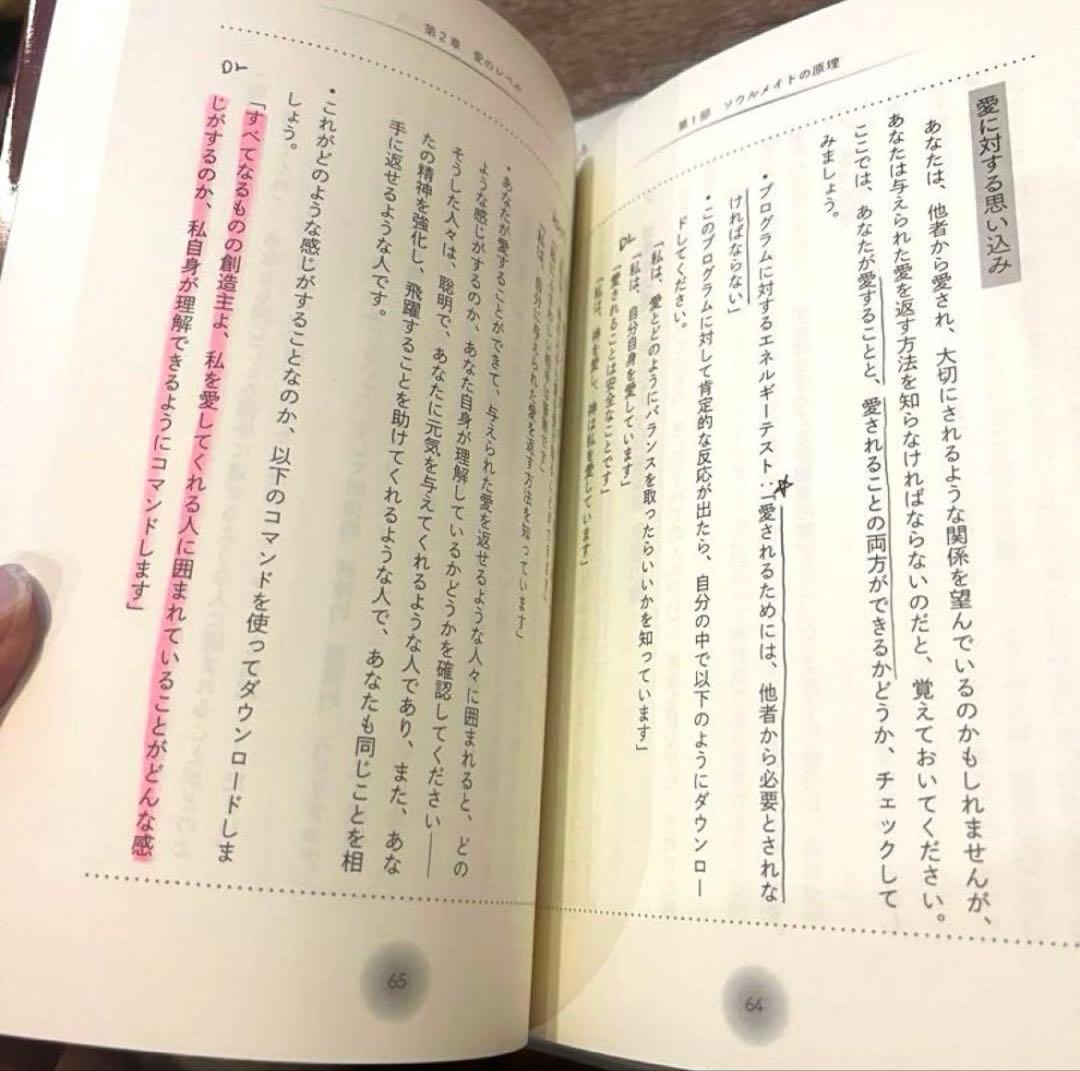 第1部　ソウルメイトの原理
愛に対する思い込み
あなたは、他者から愛され、大切にされるような関係を望んでいるのかもしれませんが、
あなたは与えられた愛を返す方法を知らなければならないのだと、覚えておいてください。
ここでは、あなたが愛することと、愛されることの両方ができるかどうか、チェックして
みましょう。
・プログラムに対するエネルギーテスト：「愛されるためには、他者から必要とされな
ければならない」
・このプログラムに対して肯定的な反応が出たら、自分の中で以下のようにダウンロー
ドしてください。
「私は、愛とどのようにバランスを取ったらいいかを知っています」
DL
「私は、自分自身を愛しています」
「愛されることは安全なことです」
「私は、神を愛し、神は私を愛しています」
64
第2章　愛のレベル
「私は、自分に与えられた愛を返す方法を知っています」
・あなたが愛することができて、与えられた愛を返せるような人々に囲まれると、どの
ような感じがするのか、あなた自身が理解しているかどうかを確認してください――
そうした人々は、聡明で、あなたに元気を与えてくれるような人であり、また、あな
たの精神を強化し、飛躍することを助けてくれるような人で、あなたも同じことを相
手に返せるような人です。
・これがどのような感じがすることなのか、以下のコマンドを使ってダウンロードしま
しょう。
DL
「すべてなるものの創造主よ、私を愛してくれる人に囲まれていることがどんな感
じがするのか、私自身が理解できるようにコマンドします」
65